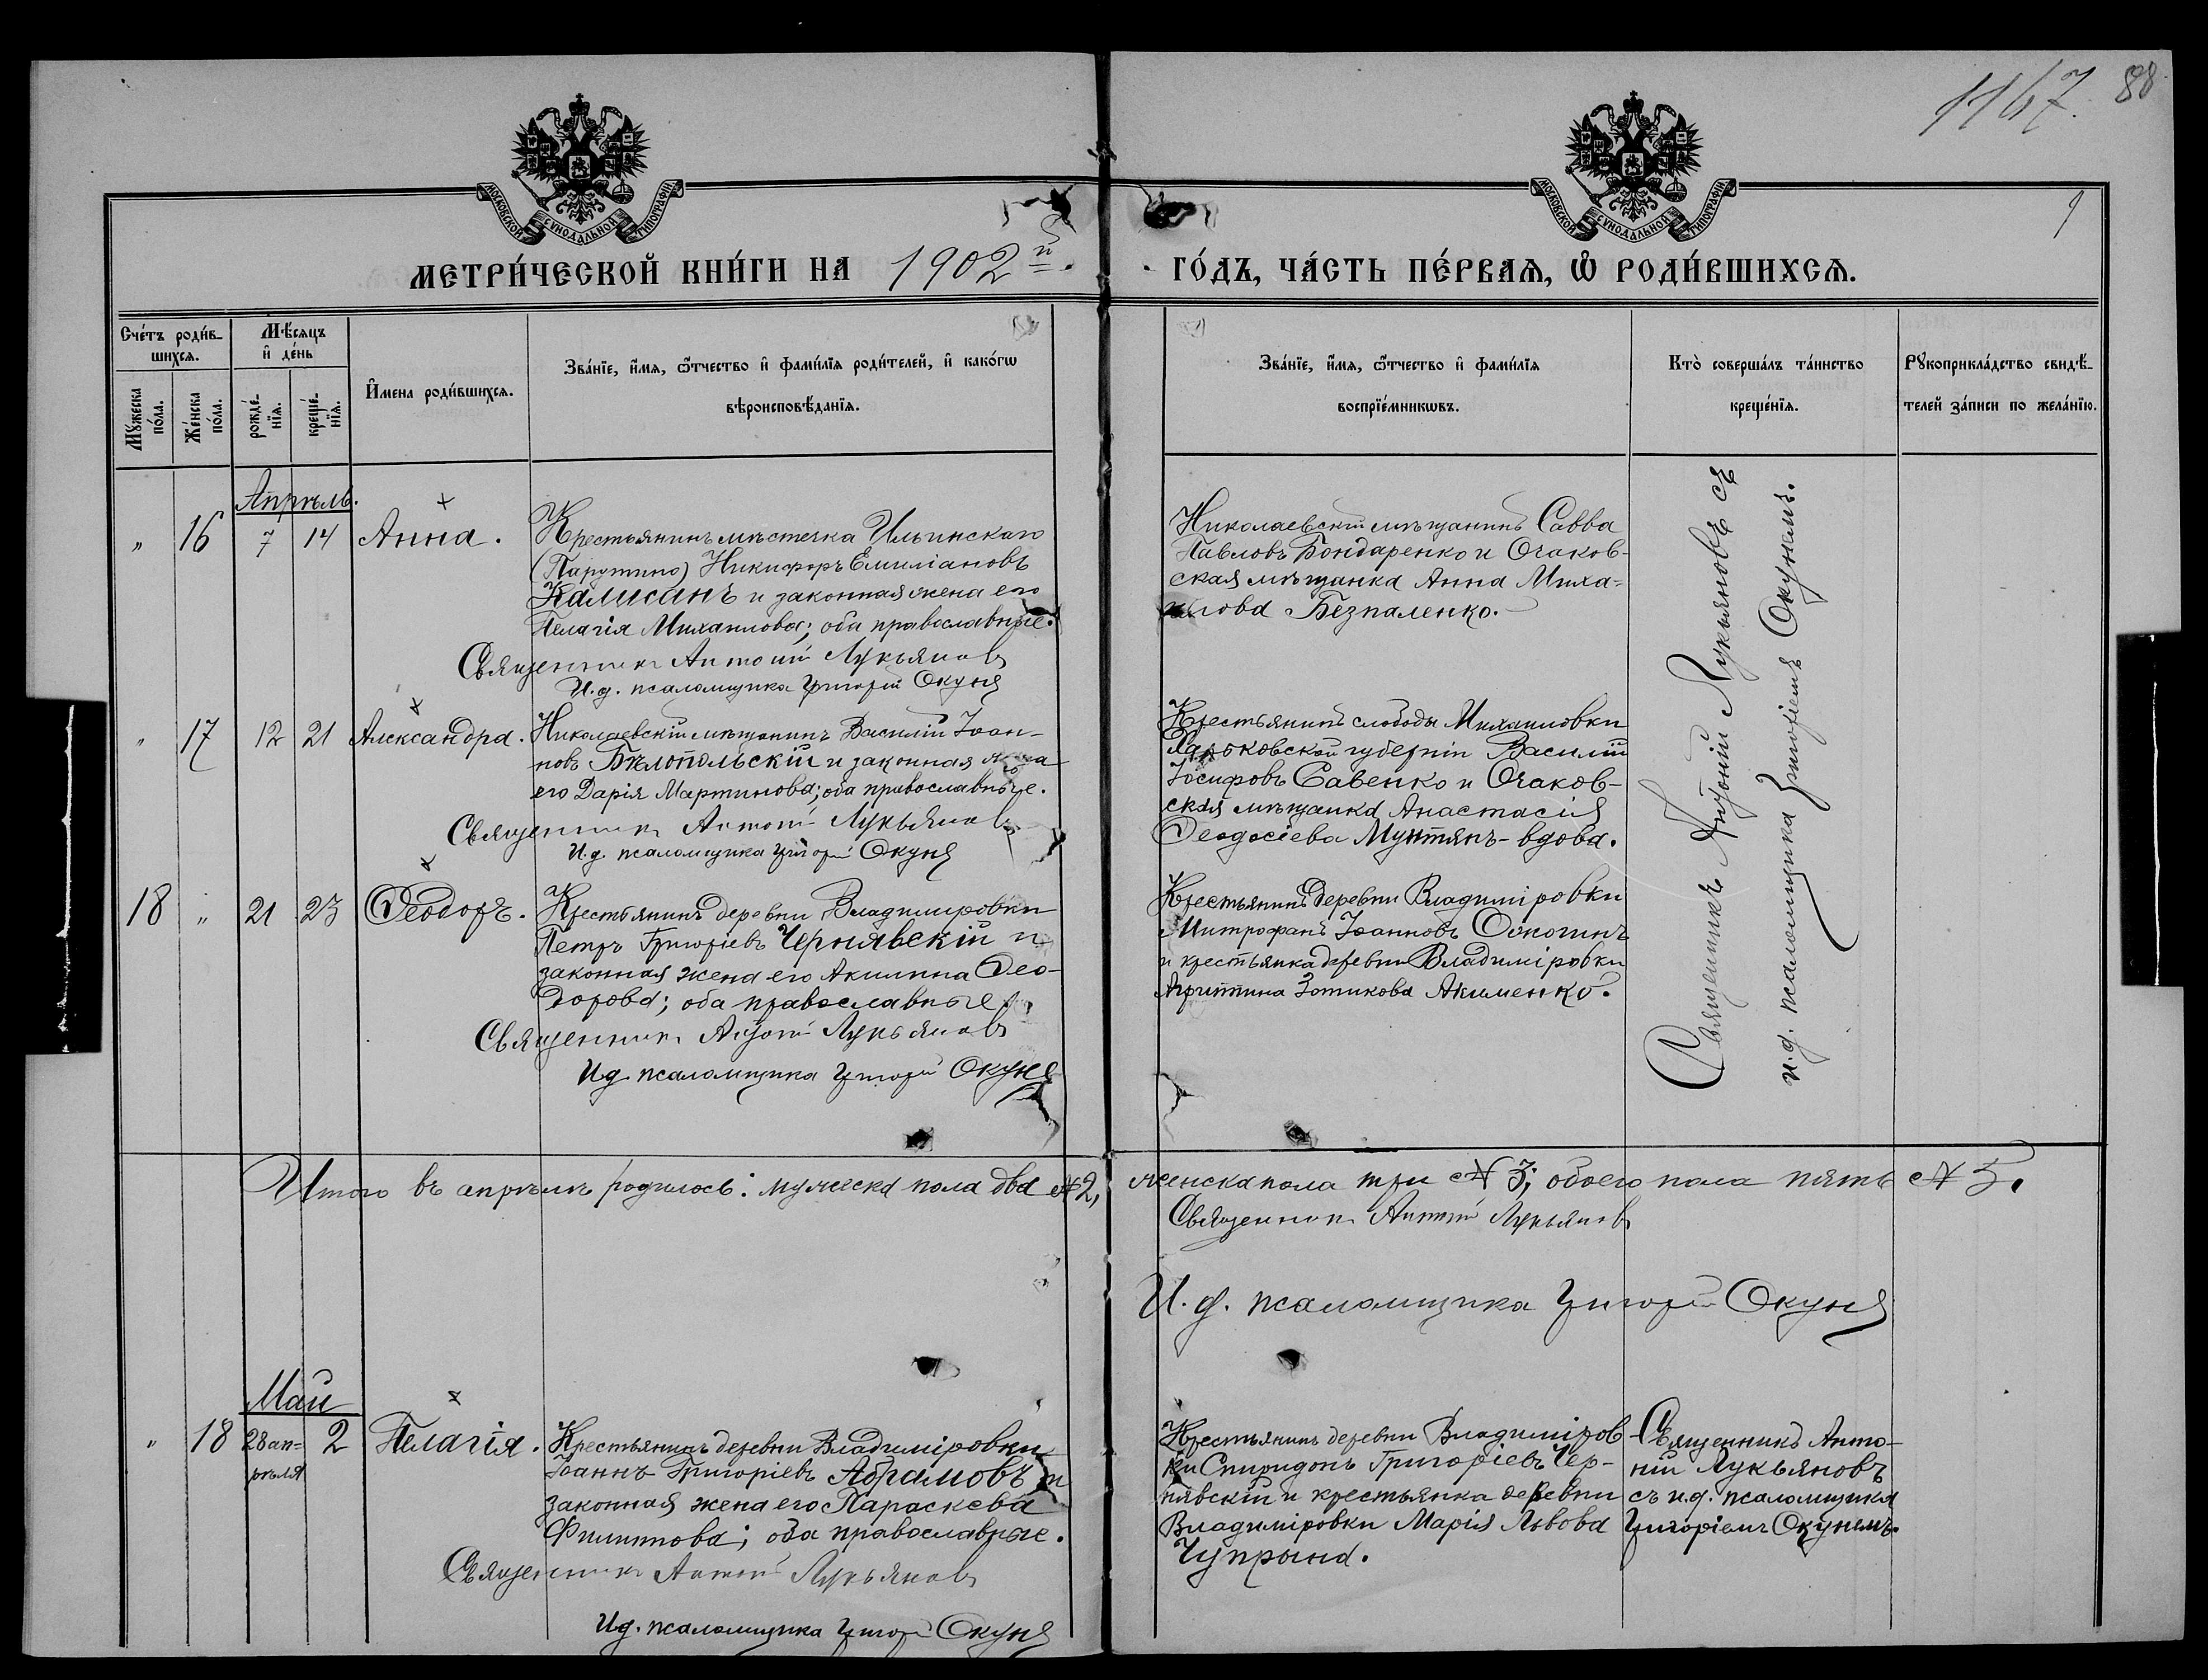 1167. 88
9
МОСКОВСКОЙ СѴНОДАЛЬНОЙ ТИПОГРАФІИ
МОСКОВСКОЙ СѴНОДАЛЬНОЙ ТИПОГРАФІИ
МЕТРИ́ЧЕСКОЙ КНИ́ГИ НА 1902й. ГО́ДЪ, ЧА́СТЬ ПЕ́РВАѦ, Ѡ҆ РОДИ́ВШИХСѦ.
Сче́тъ роди́в-
шихсѧ.
Мꙋ́жеска
по́ла.
Же́нска
по́ла.
Мѣ́сѧцъ
и҆ де́нь
рожде́-
нїѧ.
креще́-
нїѧ.
И҆мена роди́вшихсѧ.
Зва́нїе, и҆́мѧ, ѻ҆́тчество и҆ фами́лїѧ роди́телей, и҆ како́гѡ
вѣроисповѣ́данїѧ.
Зва́нїе, и҆́мѧ, ѻ҆́тчество и҆ фами́лїѧ
воспрїе́мникѡвъ.
Кто̀ соверша́лъ та́инство
креще́нїѧ.
Рꙋкоприкла́дство свидѣ́-
телей за́писи по жела́нїю.
Апрѣль.
" 16 7 14 Анна.
Крестьянинъ мѣстечка Ильинскаго
(Парутино) Никифоръ Емиліановъ
Калисанъ и законная жена его
Пелагія Михаилова; оба православные.
Священникъ Антоній Лукьяновъ
И.д. псаломщика Григорій Окунь
Николаевскій мѣщанинъ Савва
Павловъ Бондаренко и Очаков-
ская мѣщанка Анна Миха-
илова Безпаленко.
Священникъ Антоній Лукьяновъ съ
и.д. псаломщика Григоріемъ Окунемъ.
" 17 12 21 Александра.
Николаевскій мѣщанинъ Василій Іоан-
новъ Бѣлопольскій и законная жена
его Дарія Мартинова; оба православные.
Священникъ Антоній Лукьяновъ
И.д. псаломщика Григорій Окунь
Крестьянинъ слободы Михаиловки
Харьковской губерніи Василій
Іосифовъ Савенко и Очаков-
ская мѣщанка Анастасія
Ѳеодосіева Мунтянъ - вдова.
18 " 21 23 Ѳеодоръ.
Крестьянинъ деревни Владиміровки
Петръ Григоріевъ Чернявскій и
законная жена его Акилина Ѳео-
дорова; оба православные.
Священникъ Антоній Лукьяновъ
И.д. псаломщика Григорій Окунь
Крестьянинъ деревни Владиміровки
Митрофанъ Іоанновъ
и крестьянка деревни Владиміровки
Агриппина Зотикова Акименко.
Итого въ апрѣлѣ родилось: мужеска пола два №2, женска пола три № 3; обоего пола пять № 5.
Священникъ Антоній Лукьяновъ
И. д. псаломщика Григорій Окунь
Май
" 18 28 ап- 2 Пелагія.
рѣля
Крестьянинъ деревни Владиміровки
Іоаннъ Григоріевъ Абрамовъ и
законная жена его Параскева
Филиппова; оба православные.
Священникъ Антоній Лукьяновъ
И.д. псаломщика Григорій Окунь
Крестьянинъ деревни Владиміров-
ки Спиридонъ Григоріевъ Чер-
нявскій и крестьянка деревни
Владиміровки Марія Львова
Чупрына.
Священникъ Анто-
ній Лукьяновъ
съ и.д. псаломщика
Григоріемъ Окунемъ.